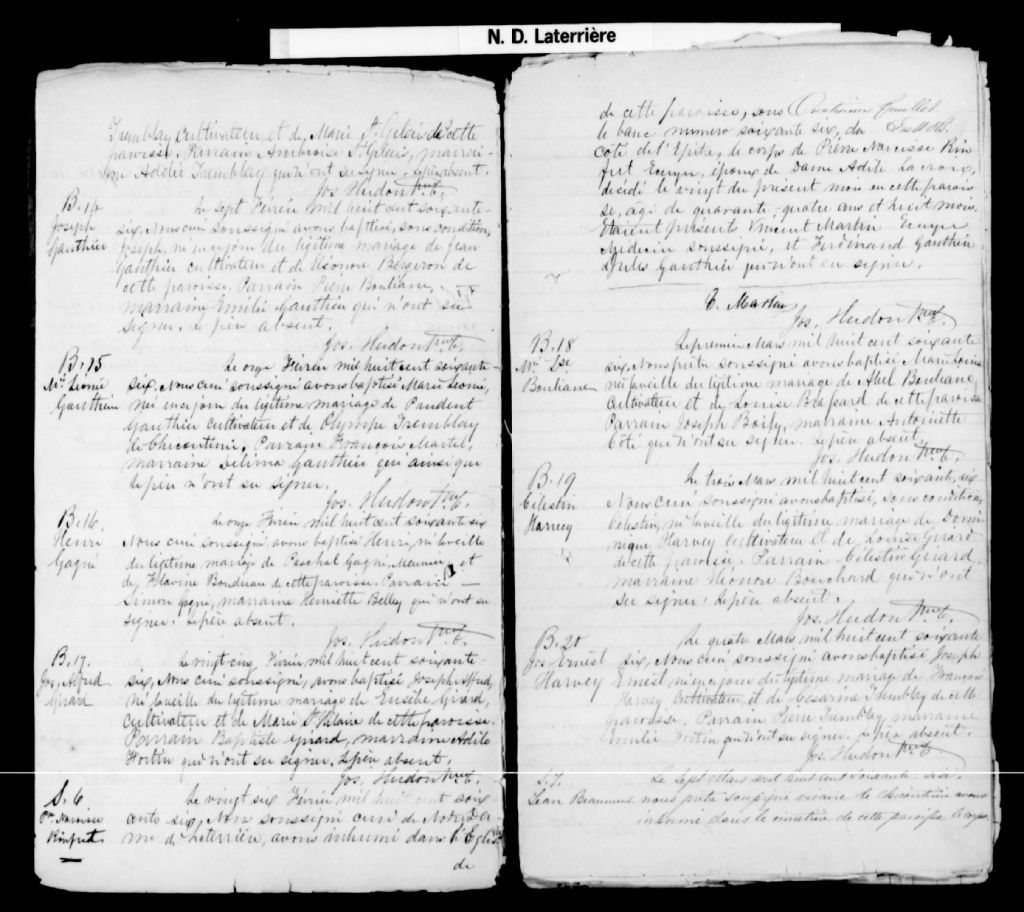 N. D. Laterrière
Tremblay cultivateur et de Marie St Gelais de cette
paroisse. Parrain Ambroise St Gelais, marrai-
ne Adélie Tremblay qui n'ont su signer. Le père absent.
Jos. Hudon Ptre C.
B. 14
Joseph
Gauthier
Le sept Février mil huit cent soixante-
six, Nous curé soussigné avons baptisé, sous condition,
Joseph, né en ce jour du légitime mariage de Jean
Gauthier cultivateur et de Eléonore Bergeron de
cette paroisse. Parrain Pierre Bouliane,
marraine Emélie Gauthier qui n'ont su
signer. Le père absent.
Jos. Hudon Ptre C.
B. 15
Mie Léonie
Gauthier
Le onze Février mil huit cent soixante-
six, Nous curé soussigné avons baptisé Marie Léonie,
née en ce jour du légitime mariage de Prudent
Gauthier cultivateur et de Olympe Tremblay
de Chicoutimi. Parrain François Martel,
marraine Délima Gauthier qui ainsi que
le père n'ont su signer.
Jos. Hudon Ptre C.
B. 16.
Henri
Gagné
Le onze Février mil huit cent soixante six
Nous curé soussigné avons baptisé Henri, né la veille
du légitime mariage de Paschal Gagné, Meunier, et
de Flavine Boudreau de cette paroisse. Parrain
Simon Gagné, marraine Henriette Belley qui n'ont su
signer. Le père absent.
Jos. Hudon Ptre C.
B. 17.
Jos. Alfred
Girard
Le vingt cinq Février mil huit cent soixante-
six, Nous curé soussigné, avons baptisé Joseph Alfred,
né la veille du légitime mariage de Eusèbe Girard,
cultivateur et de Marie St Hilaire de cette paroisse.
Parrain Baptiste Girard, marraine Adèle
Fortin qui n'ont su signer. Le père absent.
Jos. Hudon Ptre C.
S. 6
Pre Narcisse
Rinfret
Le vingt six Février mil huit cent soix-
ante six, Nous soussigné curé de Notre Da-
me de Laterrière, avons inhumé dans l'Eglise
de
de cette paroisse, sous Quatrième feuillet.
le banc numero soixante six, du
côté de l'Epitre, le corps de Pierre Narcisse Rin
fret Ecuyer, époux de Dame Adèle Lacroix,
décédé le vingt du présent mois en cette parois
se, âgé de quarante-quatre ans et huit mois.
Etaient présents Vincent Martin Ecuyer
Médecin soussigné, et Ferdinand Gauthier
Jules Gauthier qui n'ont su signer.
V. Martin
Jos. Hudon Ptre C.
B. 18
Mie Lse
Bouliane
Le premier Mars mil huit cent soixante
six, Nous prêtre soussigné avons baptisé Marie Louise
née la veille du légitime mariage de Abel Bouliane
Cultivateur et de Louise Brassard de cette paroisse
Parrain Joseph Boily, marraine Antoinette
Côté qui n'ont su signer. Le père absent.
Jos. Hudon Ptre C.
B. 19
Célestin
Harvey
Le trois Mars mil huit cent soixante, six
Nous curé soussigné avons baptisé, sous condition,
Célestin, né la veille du légitime mariage de Domi
nique Harvey Cultivateur et de Louise Girard
de cette paroisse. Parrain Célestin Girard
marraine Eléonore Bouchard qui n'ont
su signer. Le père absent.
Jos. Hudon Ptre C.
B. 20
Jos. Ernest
Harvey
Le quatre Mars mil huit cent soixante
six, Nous curé soussigné avons baptisé Joseph
Ernest né en ce jour du légitime mariage de François
Harvey Cultivateur et de Césarine Tremblay de cette
paroisse. Parrain Pierre Tremblay, marraine
Emélie Fortin qui n'ont su signer. Le père absent.
Jos. Hudon Ptre C
S. 7.
Jean Beaumont
Le Sept Mars mil huit cent soixante-six,
nous prêtre soussigné vicaire de Chicoutimi avons
inhumé dans le cimetière de cette paroisse le corps